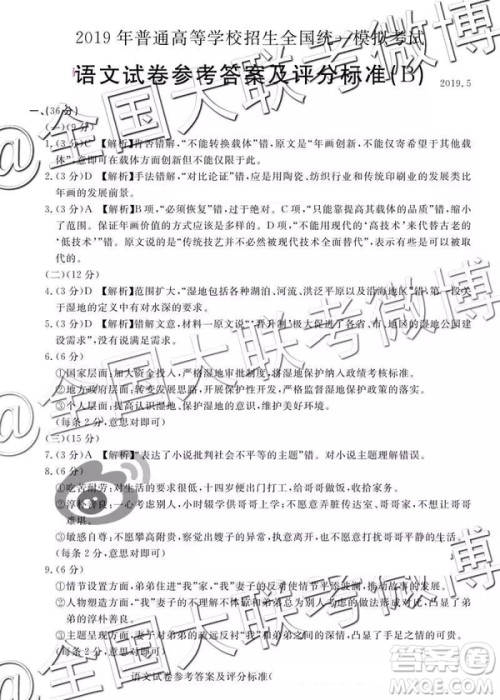 2019 年普通高等学校招生全国统一模拟考试
语文试卷参考答案及评分标准(B)
2019.5
一、(36 分)
(一)(9 分)
1.(3 分)C 【解析】 错解,“不能转换载体”错,原文是“年画的创新,不能仅寄希望于其他载
体”,意即可在载体方面创新但不能仅限于此。
2.(3 分)D 【解析】手法错解,“对比论证”错,应是用陶瓷、纺织行业和传统印刷业的发展类比
年画的发展前景。
3.(3 分)A 【解析】B 项,“必须恢复”错,过于绝对。C 项,“只能靠提高其载体的品质”错,缩小
了范围。保证年画价值的方式应该是多样的。D 项,“不能用现代的‘高技术’来代替古老的
‘低技术’”错。原文说的是“传统技艺并不必然被现代技术完全替代”,表示有些是可以被取
代的。
(二)(12 分)
4.(3 分)D 【解析】范围扩大,“湿地包括各种湖泊、河流、洪泛平原以及沿海地区”错,第一段关
于湿地的定义中有对水深的要求。
5.(3 分)D 【解析】错解文意,材料一原文说“ 极大促进了各省、市、地区的湿地公园建
设需求”,没有说满足需求。
6.(6 分)
①国家层面:加入资金投入,严格湿地审批制度,将湿地保护纳入政绩考核标准。
②地方政府层面: 开展生态保护,严格落实湿地生态保护政策的落实。
③个人层面:提高认识湿地、保护湿地的意识,积极参与到保护湿地的行动中。
(每条 2 分,意思对即可)
(三)(15 分)
7.(3 分)A 【解析】“表达了对小说批判社会不平等的主题”错。对小说主题理解错误。
8.(6 分)
①吃苦耐劳:对生活的要求很低,十四岁便出门打工,给哥哥赚取生活费。
②淳朴善良:一心考虑别人,吃苦攒钱给哥哥,不乱花哥哥的钱,离开时还把钱放在哥哥
屋内。
③自尊敏感:不愿攀高附贵,察觉出嫂子的异常,不愿给哥哥添麻烦,悄悄离开哥哥的
生活。
(每条 2 分,意思对即可)
9.(6 分)
①情节设置方面,弟弟住进“我”家中,“我”妻子的反对使情节产生波澜,推动情节发展。
②人物塑造方面,“我”妻子的不理解不体谅和自私与弟弟 的做法形成对比,凸显了弟
弟的淳朴善良。
③主题呈现方面,“我”妻子对弟弟态度 弟弟
淳朴
语文试卷参考答案及评分标准(
@全国大联考微博
答案圈